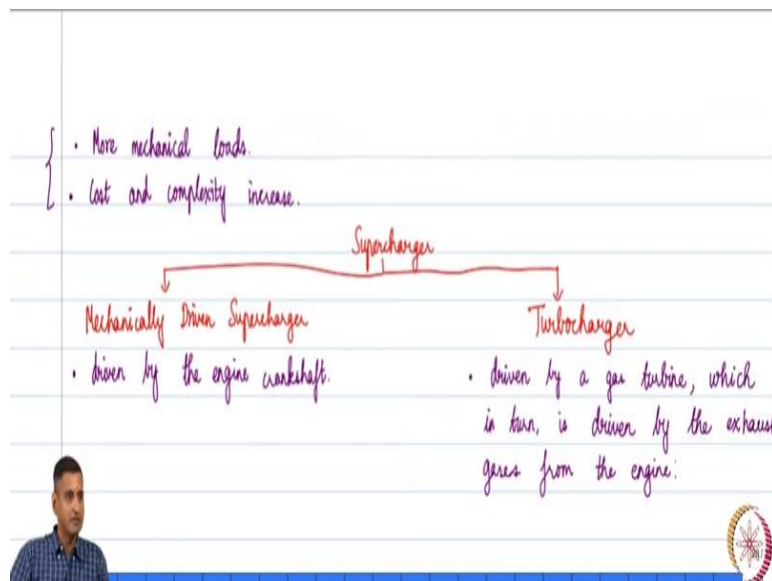 • More mechanical loads.
• Cost and complexity increase.
Supercharger
Mechanically Driven Supercharger
• driven by the engine crankshaft.
Turbocharger
• driven by a gas turbine, which
in turn, is driven by the exhaus
gases from the engine: